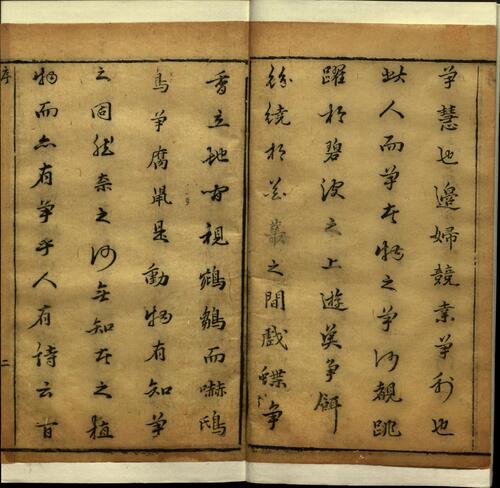 爭慧也邊婦競桑爭利也
此人而爭者物之爭何觀跳
躍於碧波之上遊魚爭餌
紛繞於花叢之間戲蝶爭
香立地視鵷鶵而嚇鴟
鳥爭腐鼠是動物有知爭
之固然奈之何無知者之植
物而亦有爭乎人有詩云百
序
二